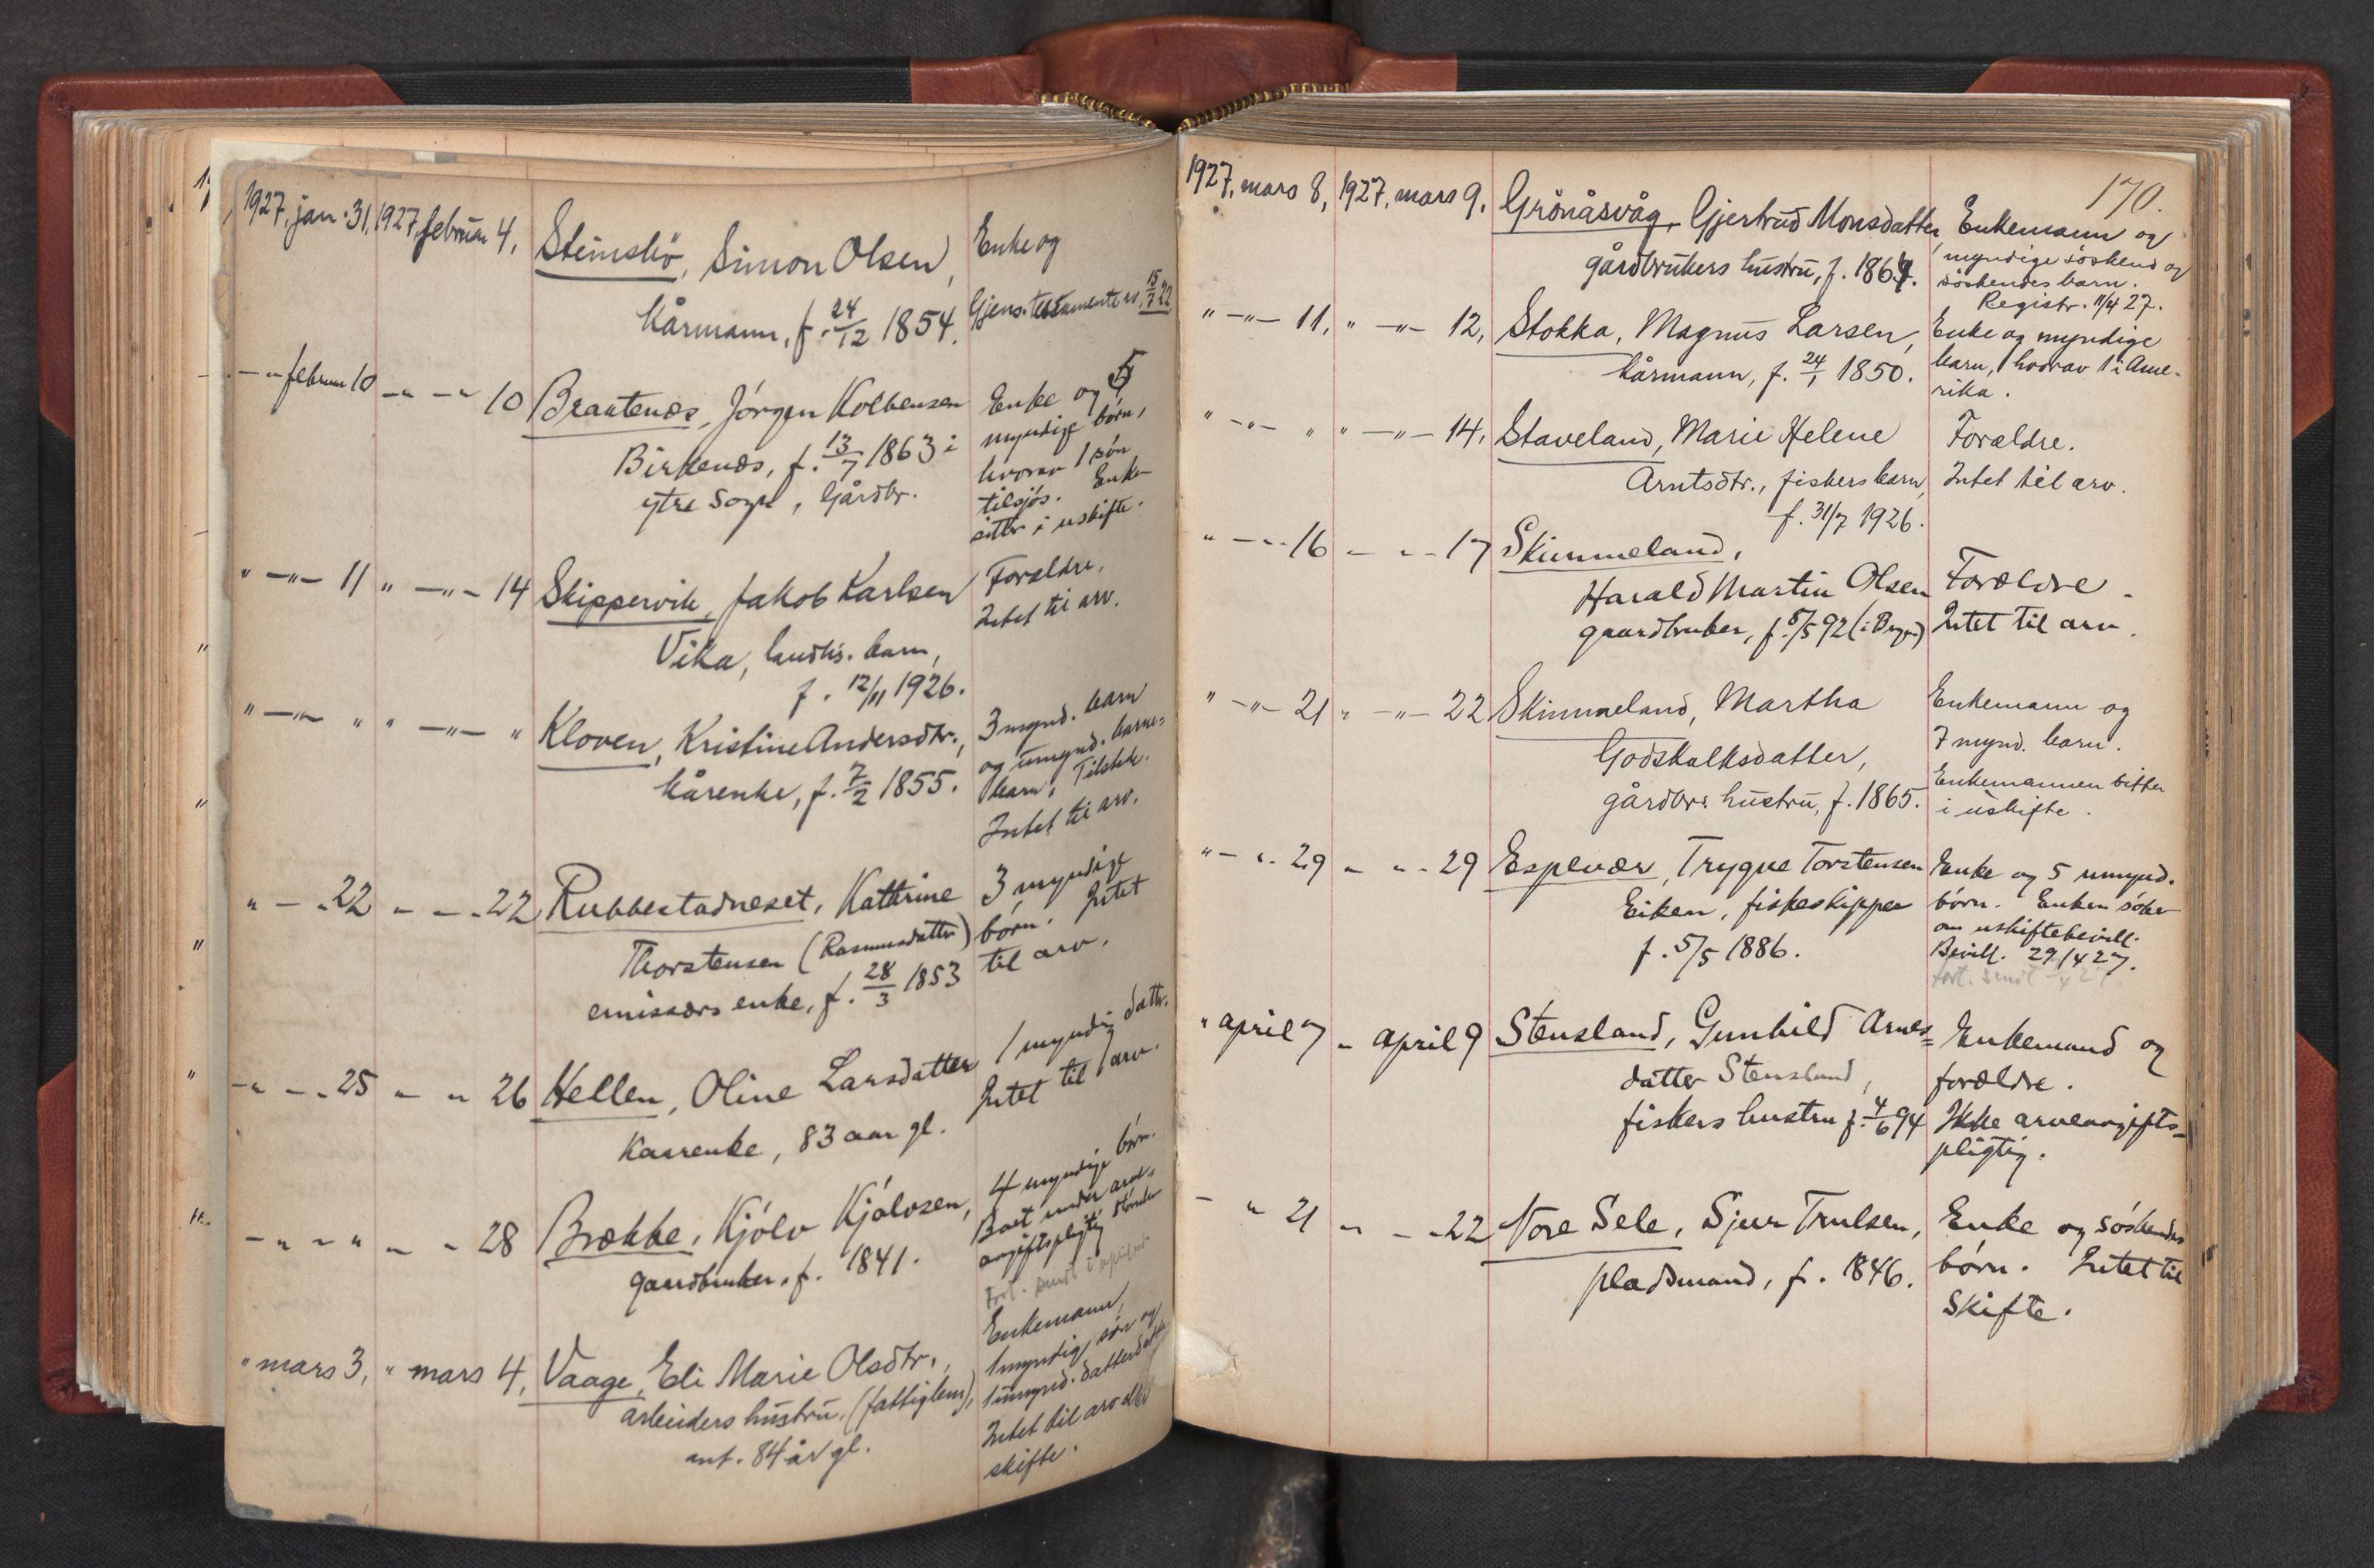 1927, jan. 31, 1927, februar 4, Steinsbø, Simon Olsen, Enke og
kårmann, f. 24/12 1854. Gjens. testamente av 15/7 22
— " februar 10 — " — " 10 Brautenæs, Jórgen Kolbensen Enke og 5
Birkenæs, f. 13/7 1863 i myndige børn,
ytre Sogn, Gårdbr. hvorav 1 søn
tilsjós. Enke
sitter i uskifte.
" —"— 11 " —"— 14 Skippervik, Jakob Karlsen Forældre.
Vika, landhs. barn, Intet til arv.
f. 12/11 1926.
" —"— " " —"— " Kloven, Kristine Andersdtr., 3 mynd. barn
kårenke, f. 7/2 1855. og umynd. barne-
barn. Tilstede.
Intet til arv.
" — " 22 " — " 22 Rubbestadneset, Kathrine 3 myndige
Thorstensen (Rasmusdatter) børn. Intet
emissærs enke, f. 28/3 1853 til arv.
— " — " 25 " " 26 Hellen, Oline Larsdatter 1 myndig dattr.
Kaarenke, 83 aar gl. Intet til arv.
— " — " " — " 28 Brække, Kjólv Kjólvsen, 4 myndige børn.
gaardbruker, f. 1841. Boet under arve-
avgiftspligtig
Enkemann,
" mars 3, " mars 4, Vaage, Eli Marie Olsdtr., 1 myndig søn og
arbeiders hustru, (fattiglem), 1 umynd. datterdatter
ant. 84 år gl. Intet til arv eller
skifte.
170.
1927, mars 8, 1927, mars 9, Grönåsvåg, Gjertrud Monsdatter, Enkemann og
gårdbrukers hustru, f. 1867. myndige söskend og
söskendes barn.
Registr. 11/4 27.
" —"— 11, " —"— 12, Stokka, Magnus Larsen, Enke og myndige
kårmann, f. 24/1 1850. barn, hvorav 1 i Ame-
rika.
" —"— " " —"— 14, Staveland, Marie Helene Forældre.
Arntsdtr., fiskers barn, Intet til arv.
f. 31/7 1926.
" — " 16 — " — 17 Skimmeland,
Harald Martin Olsen Forældre.
gaardbruker, f. 5/5 92 Intet til arv.
" —"— 21 " —"— 22 Skimmeland, Martha Enkemann og
Godskalksdatter, 7 mynd. barn.
gårdbrs hustru, f. 1865. Enkemannen sitter
i uskifte.
" — " 29 " " 29 Espevær, Trygve Torstensen Enke og 5 umynd.
Eiken, fiskeskipper børn. Enken søker
f. 5/5 1886. om uskiftebevill.
Bevill. 29/4 27.
" april 7 " april 9 Stensland, Gunhild Arnes= Enkemand og
datter Stensland, forældre.
fiskers hustru f. 4/6 94 Ikke arveavgifts-
pligtig.
— " 21 " — " 22 Nore Sele, Sjur Trulsen, Enke og söskendes
pladsmand, f. 1846. børn. Intet til
skifte.